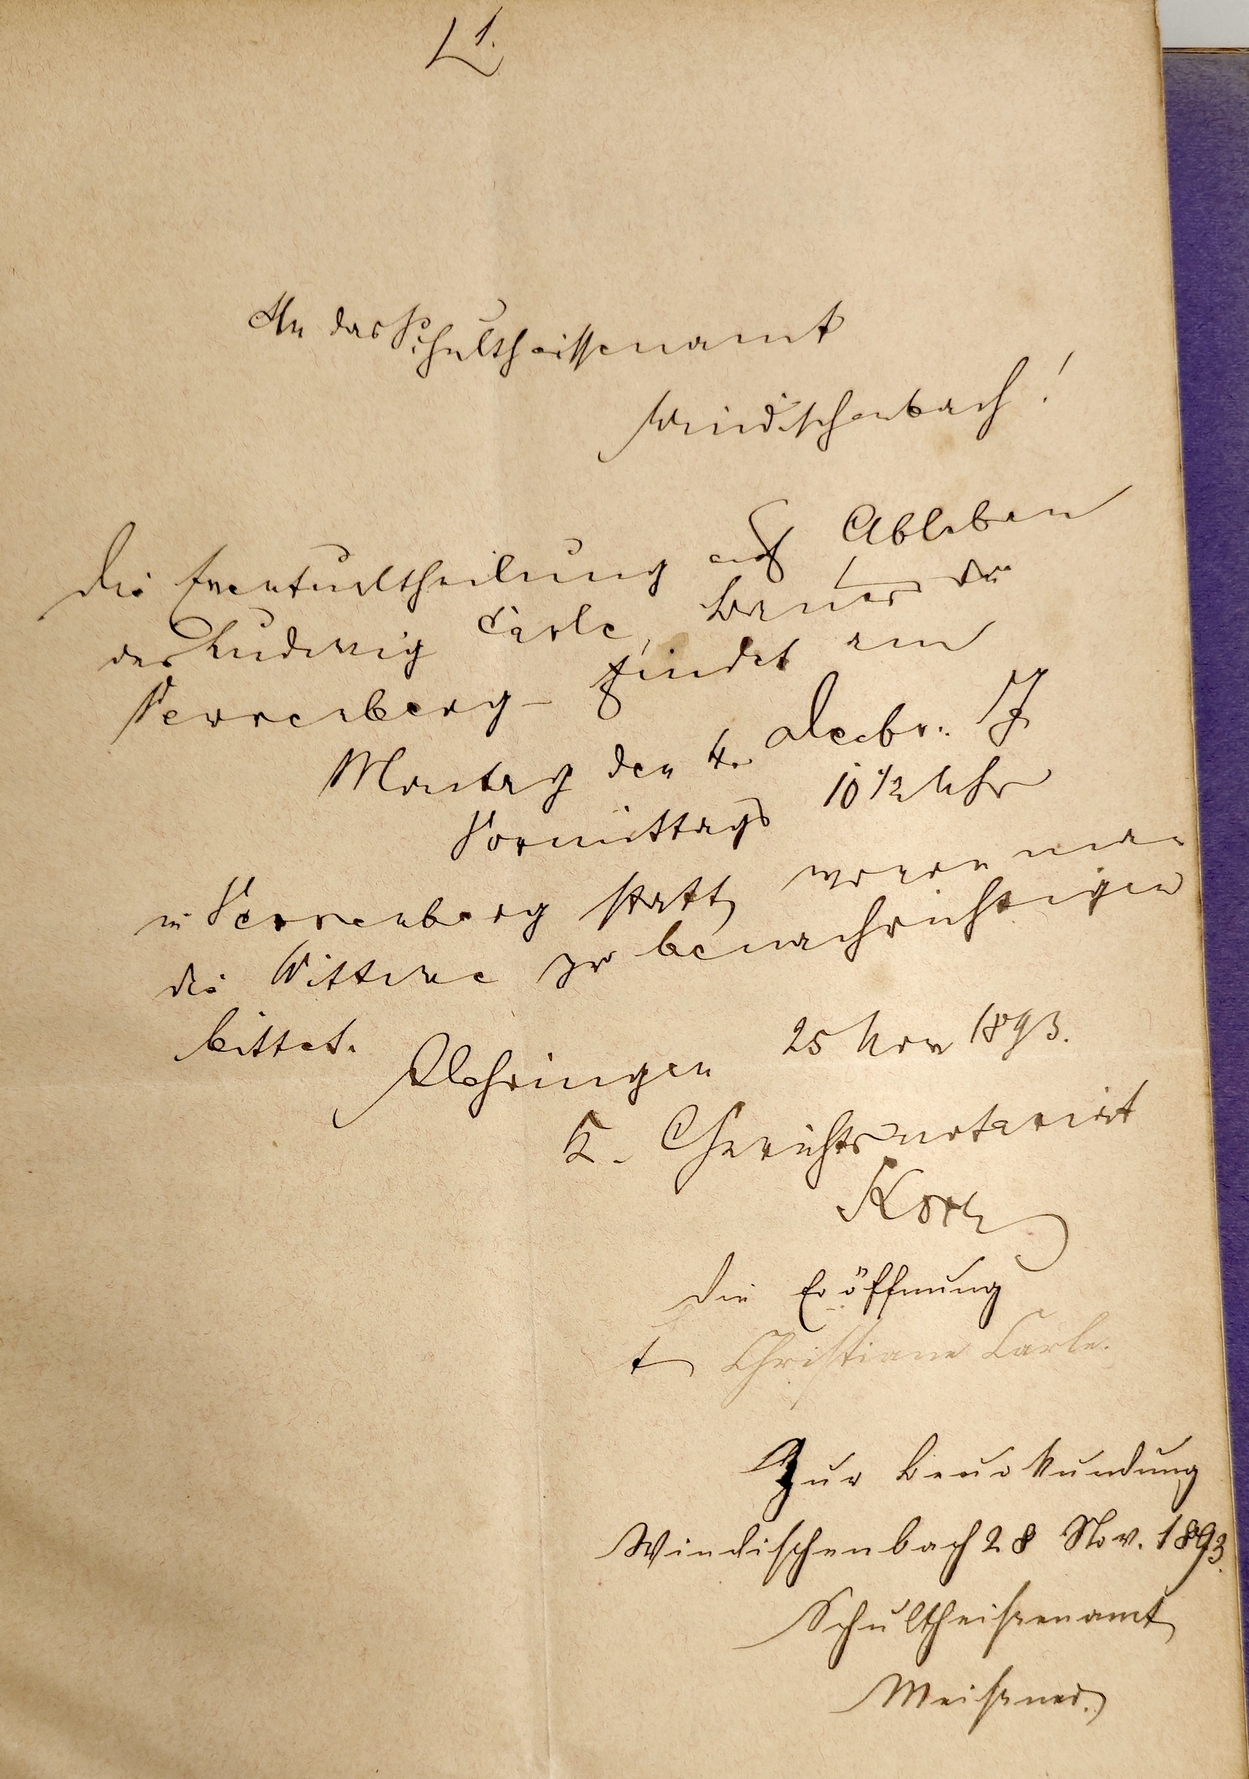 1.
An das Schultheissenamt
Windischenbach!
Die Eventualtheilung auf Ableben
des Ludwig Carle, Bauers in
Verrenberg findet am
Montag den 4. Decbr. d J
Vormittags 10 1/2 Uhr
in Verrenberg statt, wovon man
die Wittwe zu benachrichtigen
bittet.
Oehringen 25 Nov 1893.
K. Gerichtsnotariat
Die Eröffnung
t Christiane Carle.
Zur Beurkundung
Windischenbach 28 Nov. 1893.
Schultheißenamt
Meißner.